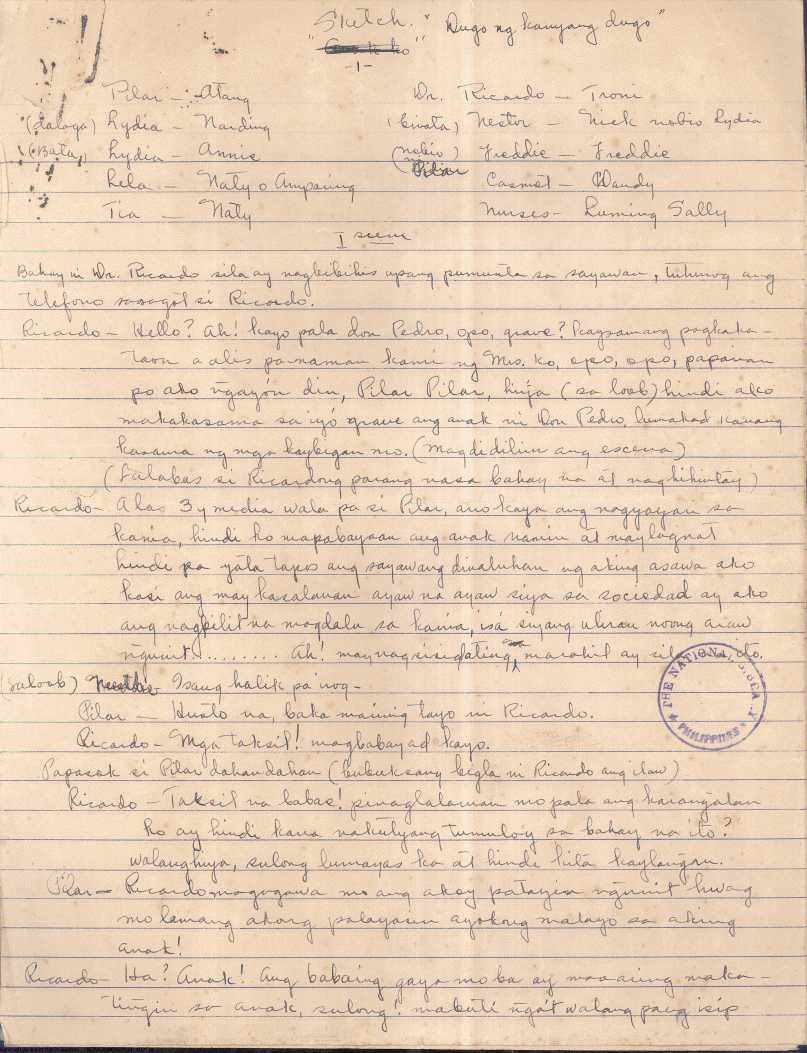 Sketch. "Dugo ng kanyang dugo"
-1-
Pilar — Atang
Dr. Ricardo — Troni
(dalaga) Lydia — Narding
(binata) Nestor — Nick nobio Lydia
(Bata) Lydia — Annie
(nobio ni Pilar) Freddie — Freddie
Lela — Naty o Amparing
Casmot — Wandy
Tia — Naty
Nurses — Luming Sally
I scene
Bahay ni Dr. Ricardo sila ay nagbibihis upang pumunta sa sayawan, tutunog ang
telefono sasagot si Ricardo.
Ricardo — Hello? Ah! kayo pala don Pedro, opo, grave? kaysamang pagkaka-
taon a alis pa naman kami ng Mrs. ko, opo, opo, paparian
po ako ngayón din, Pilar Pilar, hija (sa loob) hindi ako
makakasama sa iyó grave ang anak ni Don Pedro, lumakad ka nang
kasama ng mga kaybigan mo. (Magdidilim ang escena)
(Lalabas si Ricardong parang nasa bahay na at naghihintay)
Ricardo — Alas 3 y media wala pa si Pilar, ano kaya ang nagyayari sa
kania, hindi ko mapabayaan ang anak namin at maylagnat
hindi pa yata tapos ang sayawang dinaluhan ng aking asawa ako
kasi ang may kasalanan ayaw na ayaw siya sa sociedad ay ako
ang nagpilit na magdala sa kania, isá siyang uliran noong araw
ngunit.......... Ah! may nagsisidating, marahil ay sila na ito.
THE NATIONAL LIBRARY PHILIPPINES
(saloob) Isang halik pa nog-
Pilar — Husto na, baka marinig tayo ni Ricardo.
Ricardo — Mga taksil! magbabayad kayo.
Papasok si Pilar dahandahan (bubuksang bigla ni Ricardo ang ilaw)
Ricardo — Taksil na babae! pinaglalaruan mo pala ang karangalan
ko ay hindi kana nahiyang tumuloy sa bahay na ito?
walanghiya, sulong lumayas ka at hindi kita kaylangan.
Pilar — Ricardo magagawa mo ang akoy patayin ngunit huwag
mo lamang akong palayasin ayokong malayo sa aking
anak!
Ricardo — Ha? Anak! Ang babaing gaya mo ba ay maaaring maka-
tingin sa anak, sulong! mabuti nga't walang pang isip